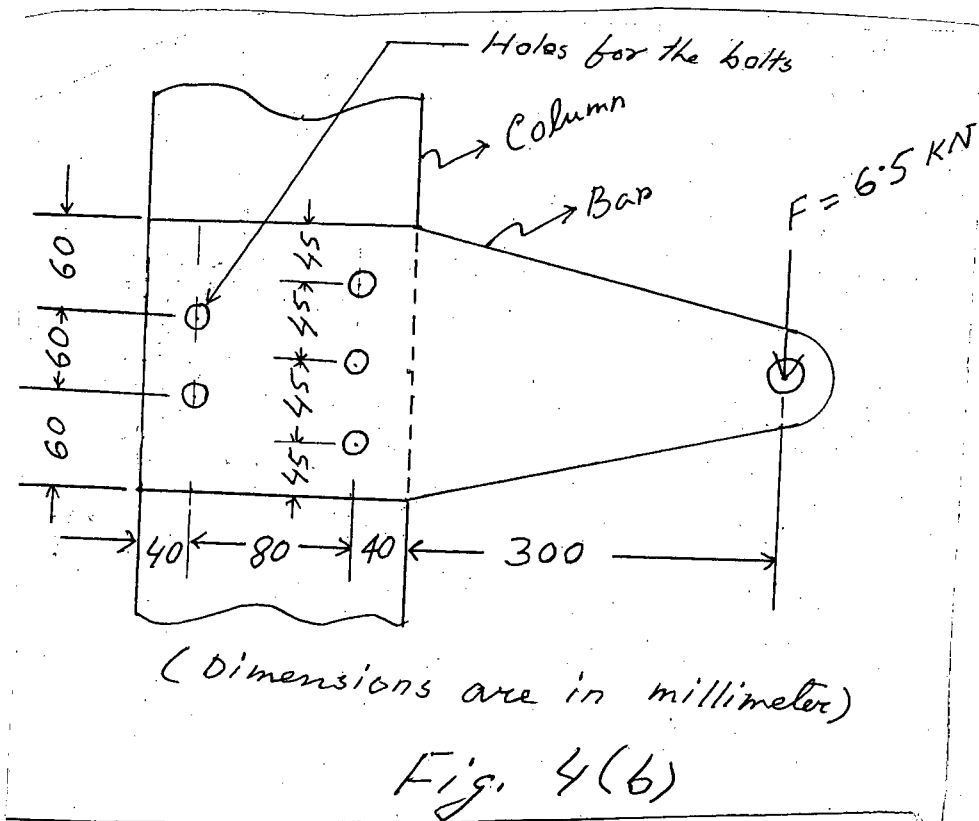 Holes for the bolts
Column
Bar
F = 6.5 KN
60
60
60
45
45
45
45
40
80
40
300
(Dimensions are in millimeter)
Fig. 4(b)